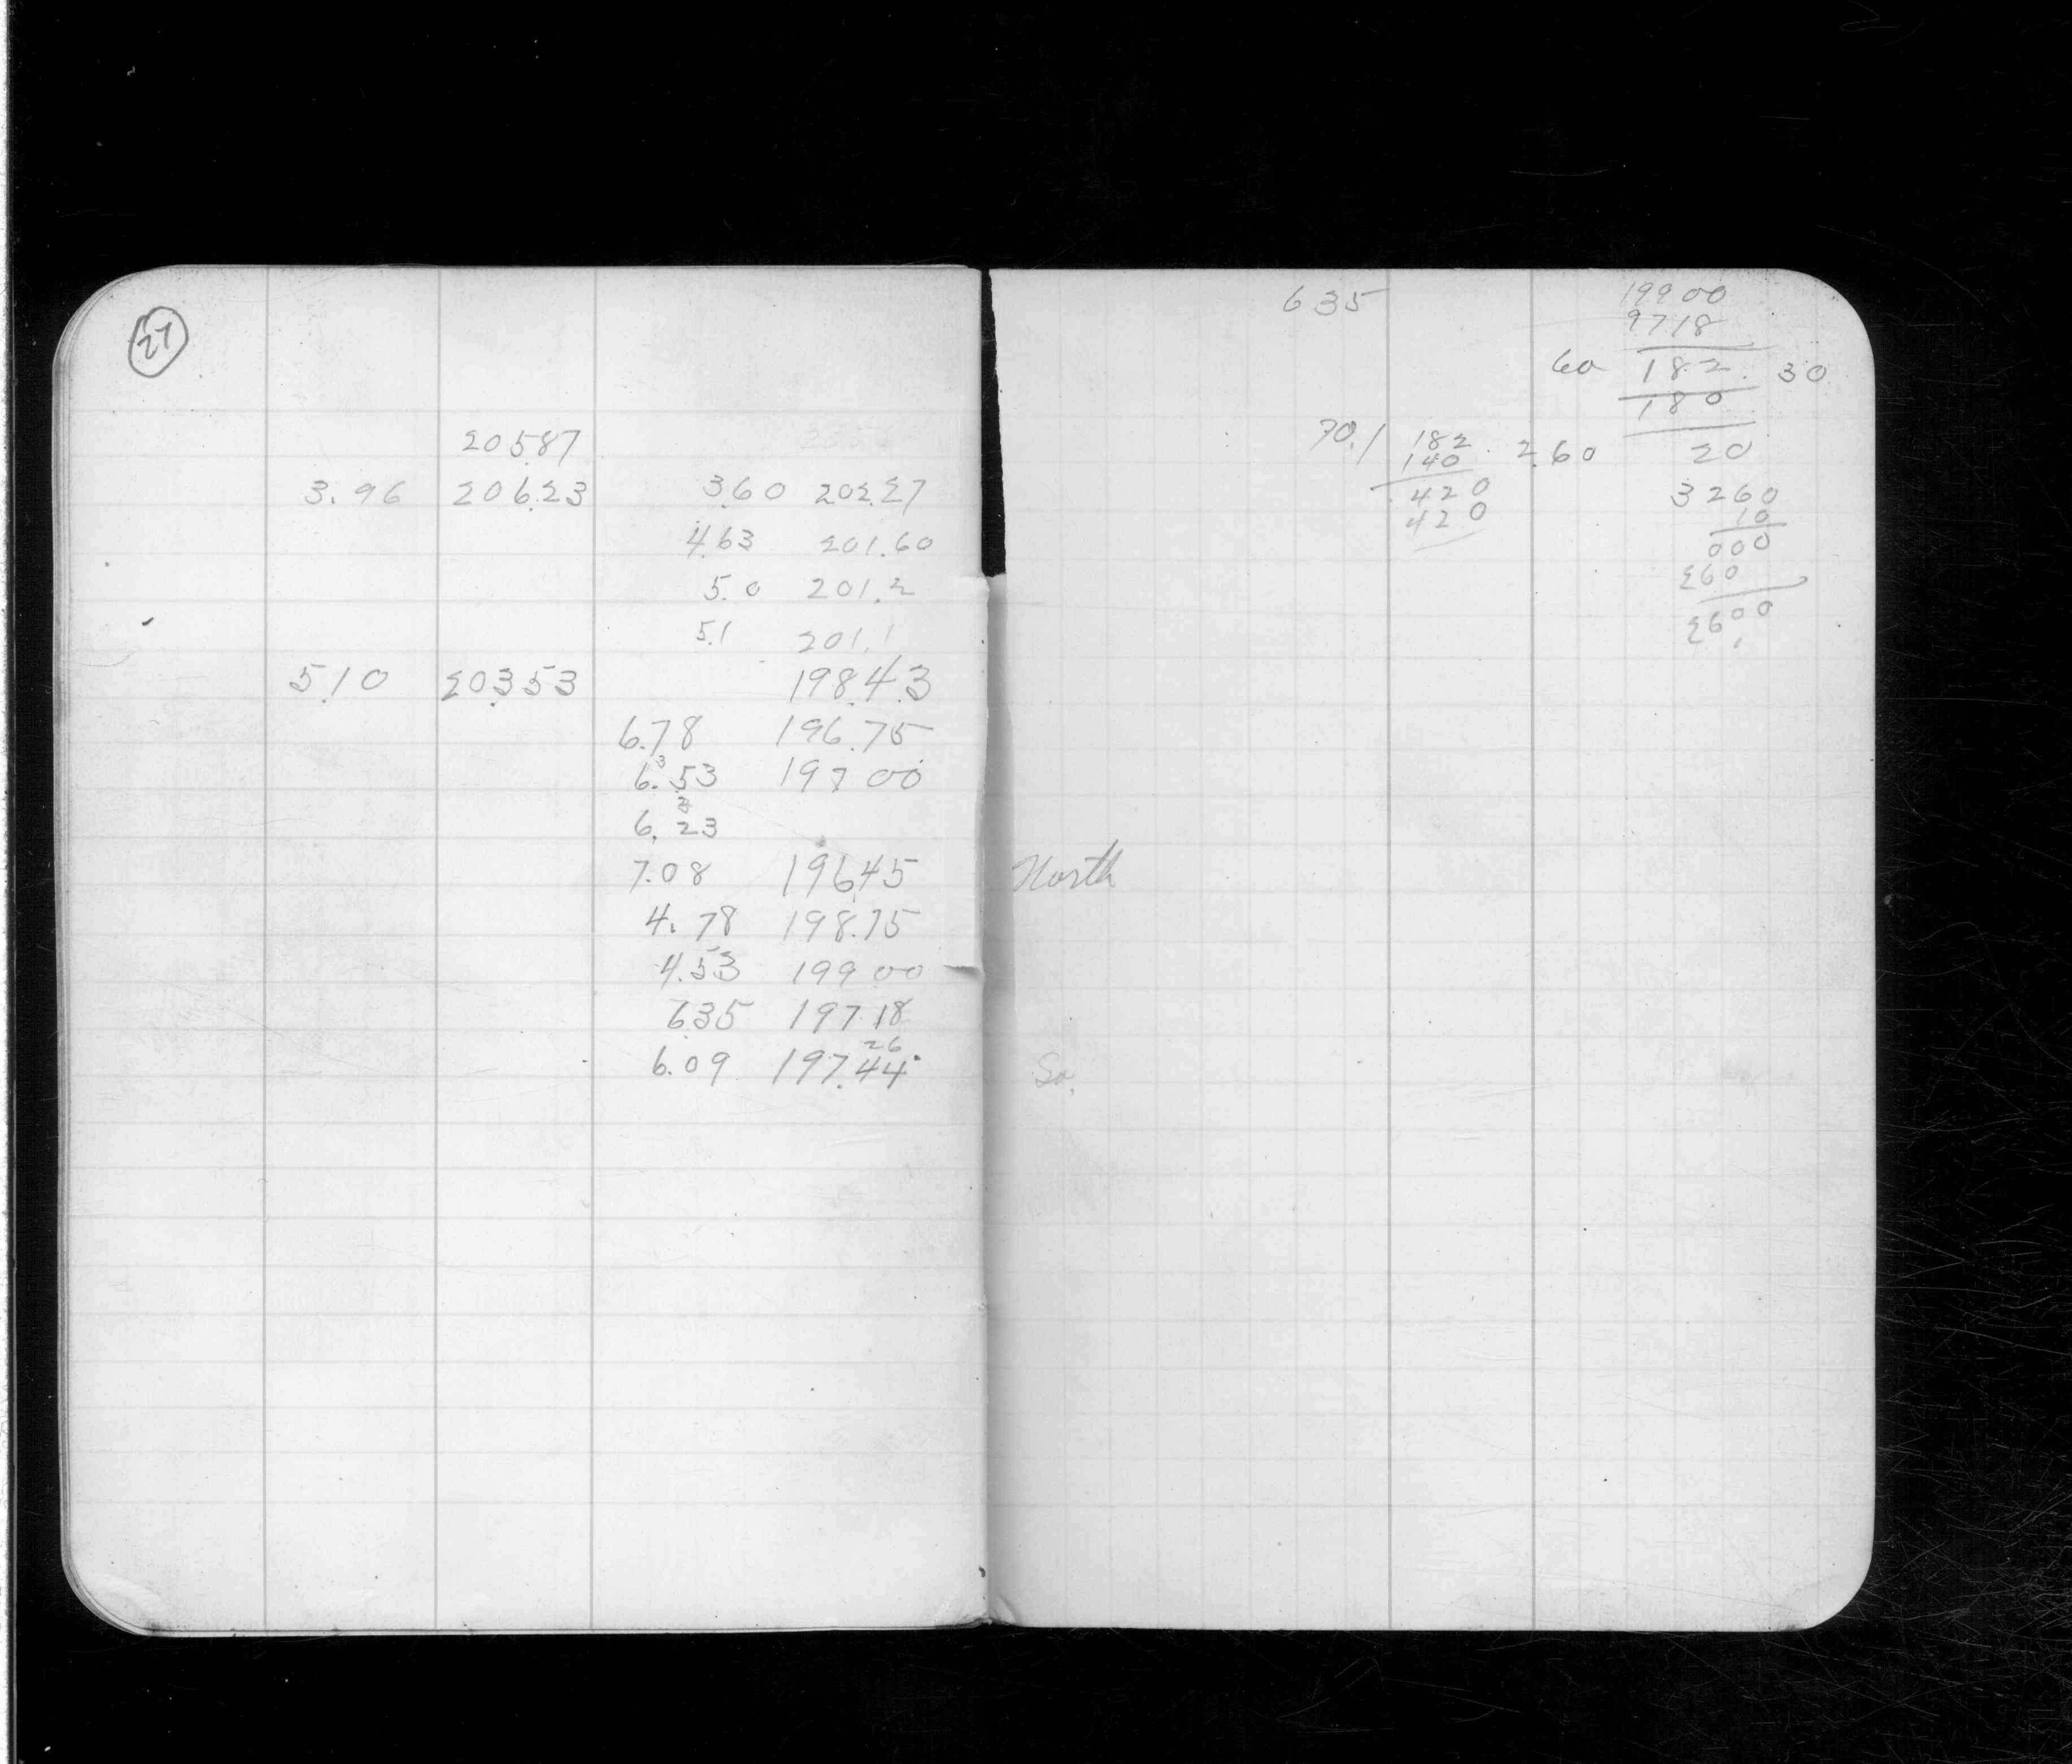 27
205.87
3.96 206.23 3.60 202.27
4.63 201.60
5.0 201.2
5.1 201.1
5.10 203.53 198.43
6.78 196.75
6.53 197 00
6.23
7.08 196.45
4.78 198.75
4.53 199 00
6.35 197.18
26
6.09 197.44
635
199 00
9718
60 182 30
180
20
3260
10
000
260
2600
70.1 182 2.60
140
420
420
North
So.